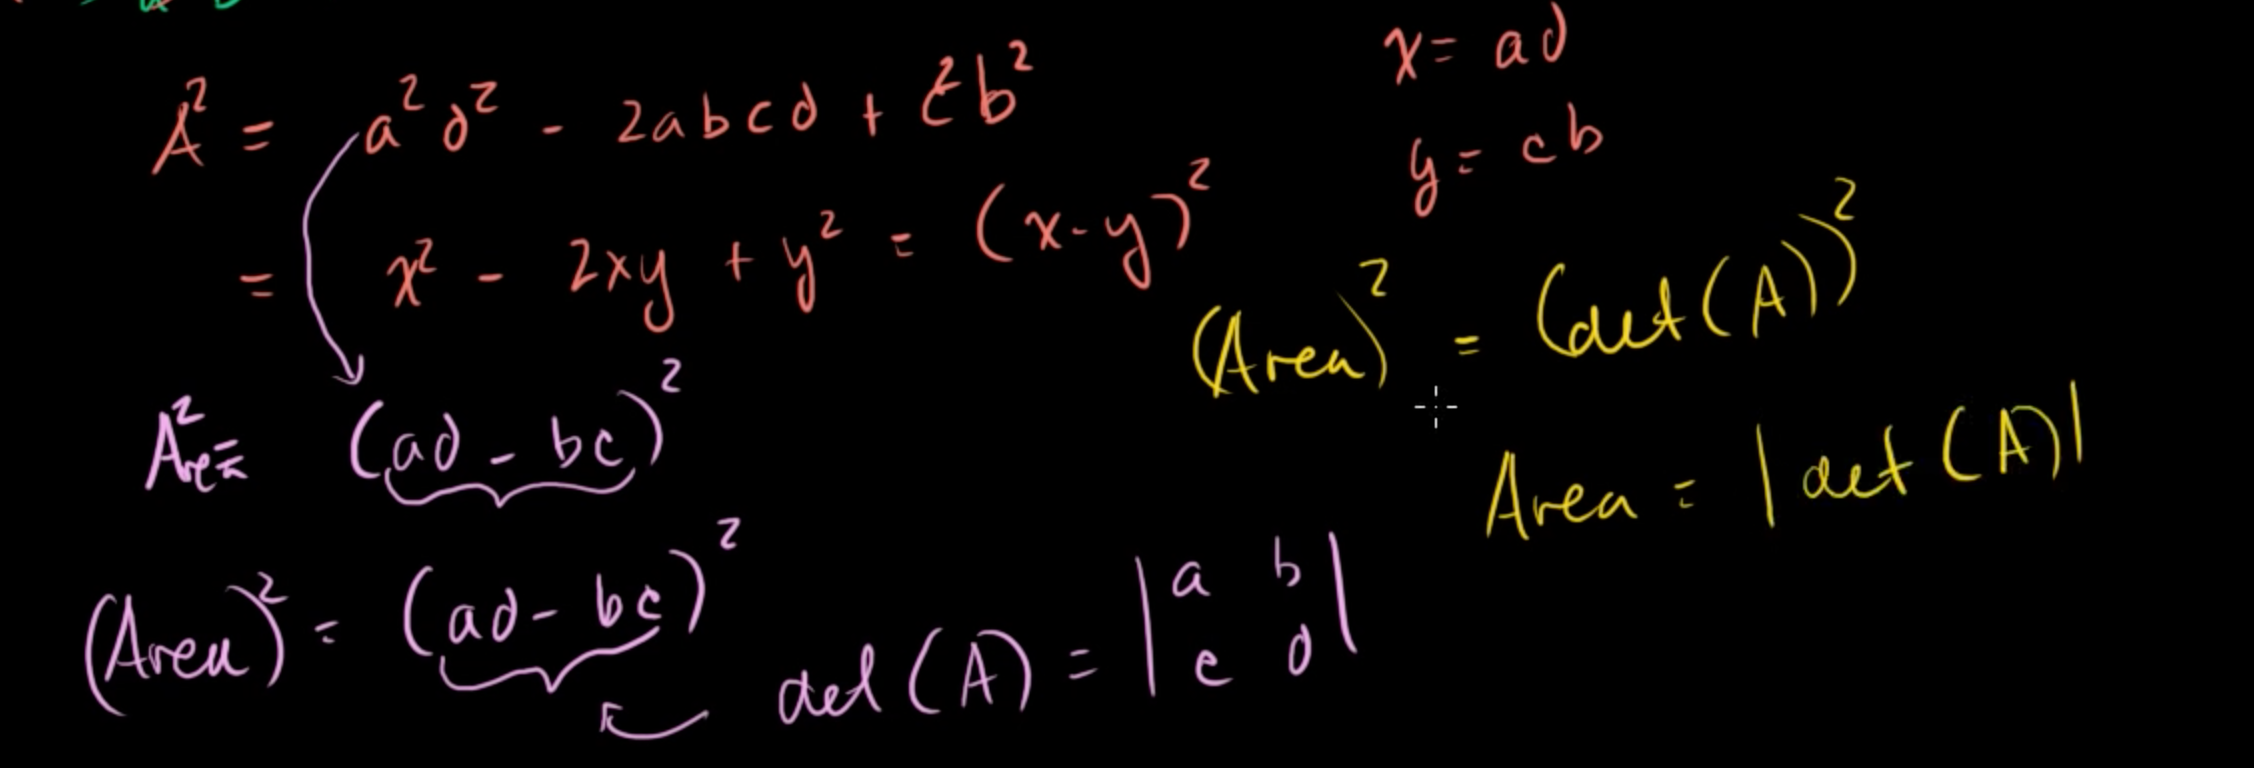 A² = a²d² - 2abcd + c²b²
x = ad
y = cb
= x² - 2xy + y² = (x-y)²
(Area)² = (det(A))²
Area² = (ad - bc)²
Area = |det(A)|
(Area)² = (ad - bc)²
det(A) = |a b|
|c d|